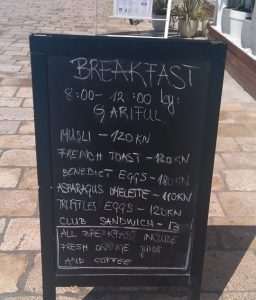 BREAKFAST
8:00- 12:00 by:
GARIFUL
MUSLI - 120KN
FRENCH TOAST - 120KN
BENEDICT EGGS - 180KN
ASPARAGUS OMELETTE - 110KN
TRUFFLES EGGS - 120KN
CLUB SANDWICH -
ALL BREAKFAST INCLUDE
FRESH ORANGE JUICE
AND COFFEE